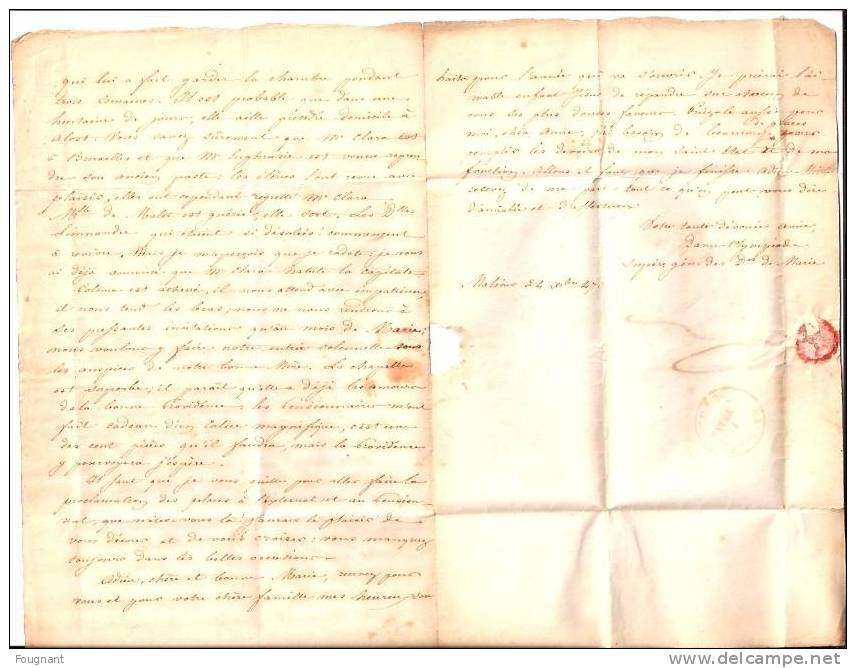 qui lui a fait garder la chambre pendant
trois semaines. Il est probable que dans une
huitaine de jours, elle aille prendre domicile à
Alost. Vous savez sûrement que Me Clara est
à Bruxelles et que Me Euphrasie est venue repren
dre son ancien poste : les élèves l'ont revue avec
plaisir, elles ont cependant regretté Me Clara.
Mlle de Malet est guérie, elle sort. Les Dlles
qui étaient si désolées commencent
à revivre. Mais je m'aperçois que je radote : je vous
ai déjà annoncé que Me Clara habite la capitale.
Coloma est achevé, il nous attend avec impatience,
il nous tend les bras, nous ne nous rendrons à
ses pressantes invitations qu'au mois de Marie;
nous voulons y faire notre entrée solennelle sous
les auspices de notre bonne Mère. La chapelle
est superbe; il paraît qu'elle a déjà les amours
de la bonne Providence; les Pensionnaires m'ont
fait cadeau d'un calice magnifique, c'est une
des cent pièces qu'il faudra, mais la Providence
y pourvoyera j'espère.
Il faut que je vous quitte pour aller faire la
proclamation des places à l'externat et au Pension-
nat, que n'êtes-vous là j'aurais le plaisir de
vous décorer et de vous croiser; vous manquez
toujours dans les belles occasions.
Adieu, chère et bonne Marie, recevez pour
vous et pour votre chère famille mes heureux sou
haits pour l'année qui va s'ouvrir. Je prierai l'ai-
mable enfant Jésus de répandre sur chacun de
vous ses plus douces faveurs. Priez-le aussi pour
moi, chère Amie; j'ai besoin de beaucoup de grâces pour
remplir les devoirs de mon saint état et de ma
fonction. Allons il faut que je finisse. Adieu
recevez de ma part tout ce qu'on peut vous dire
d'aimable et d'affectueux
Votre toute dévouée amie,
Dame Olympiade
Supére gén. des Des de Marie
Malines 24 Xbre 47.
Fougnant
www.delcampe.net